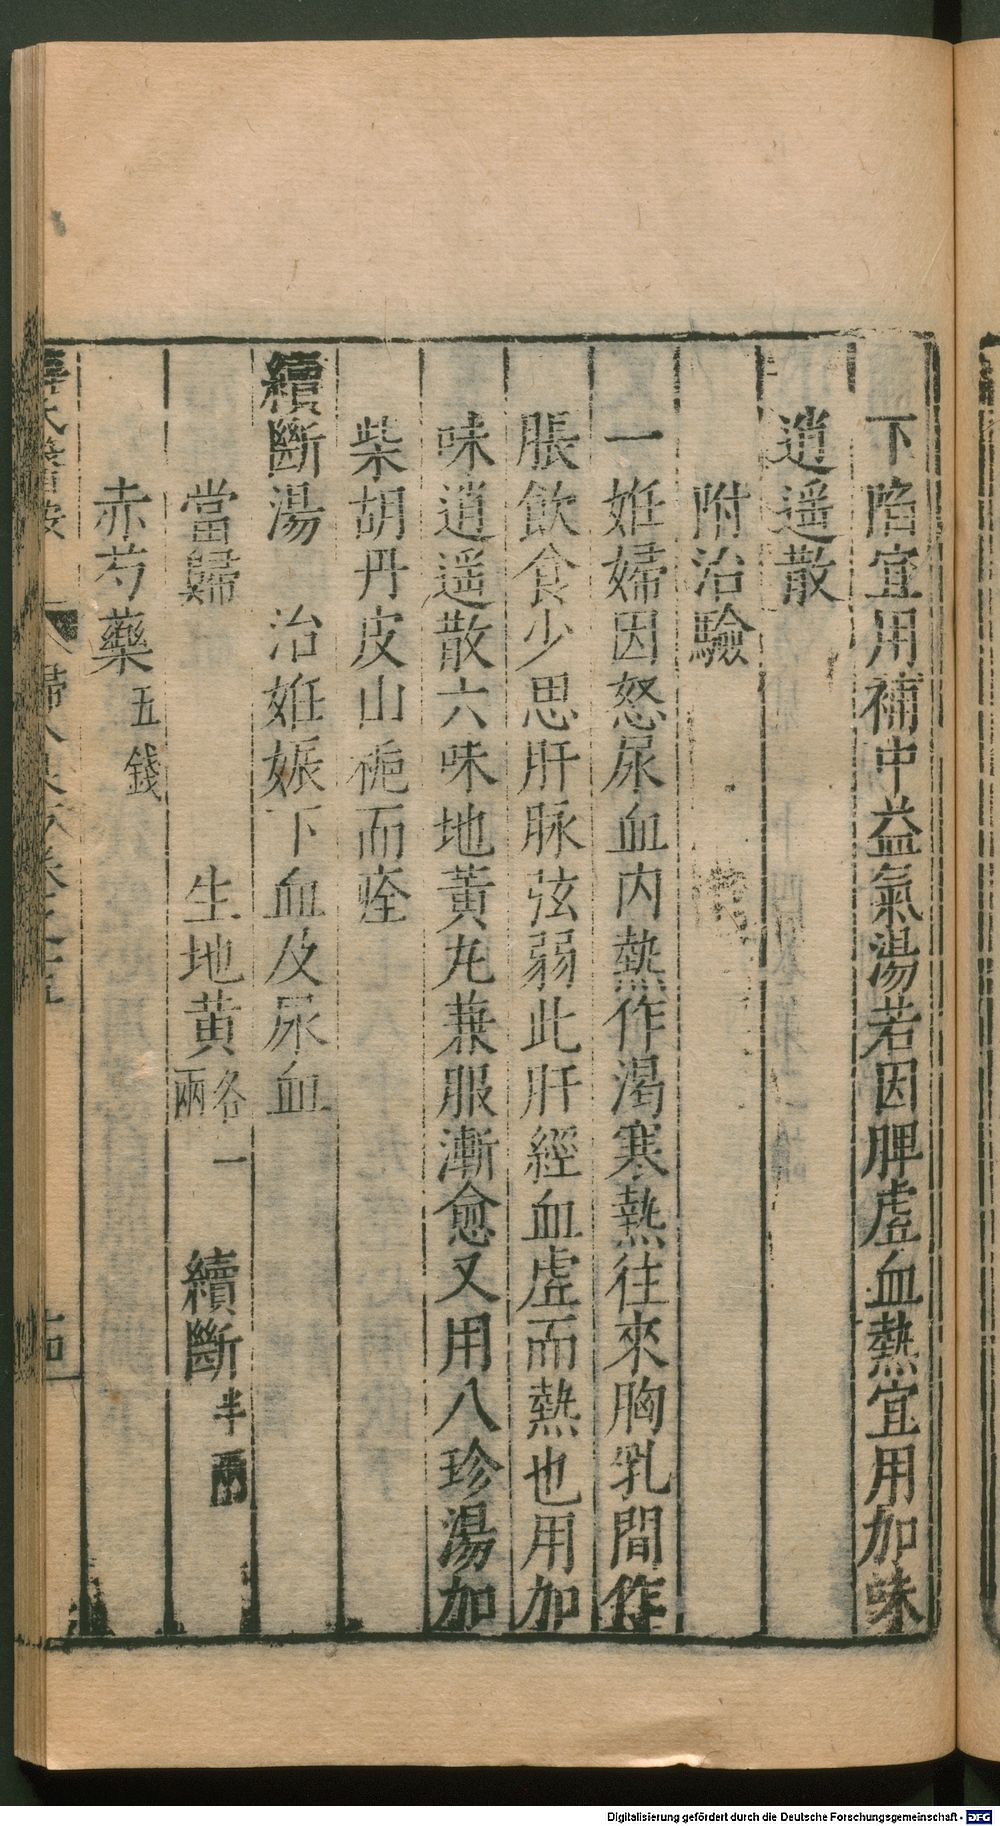 下陷宜用補中益氣湯若因脾虛血熱宜用加味
逍遥散
附治驗
一姙婦因怒尿血内熱作渴寒熱往來胸乳間作
脹飲食少思肝脉弦弱此肝經血虛而熱也用加
味逍遥散六味地黄九蒹服漸愈又用八珍湯加
柴胡丹皮山梔而痊
續斷湯 治姙娠下血及尿血
當歸 生地黄各一兩 續斷半兩
赤芍藥五錢
Digitalisierung gefördert durch die Deutsche Forschungsgemeinschaft - DFG